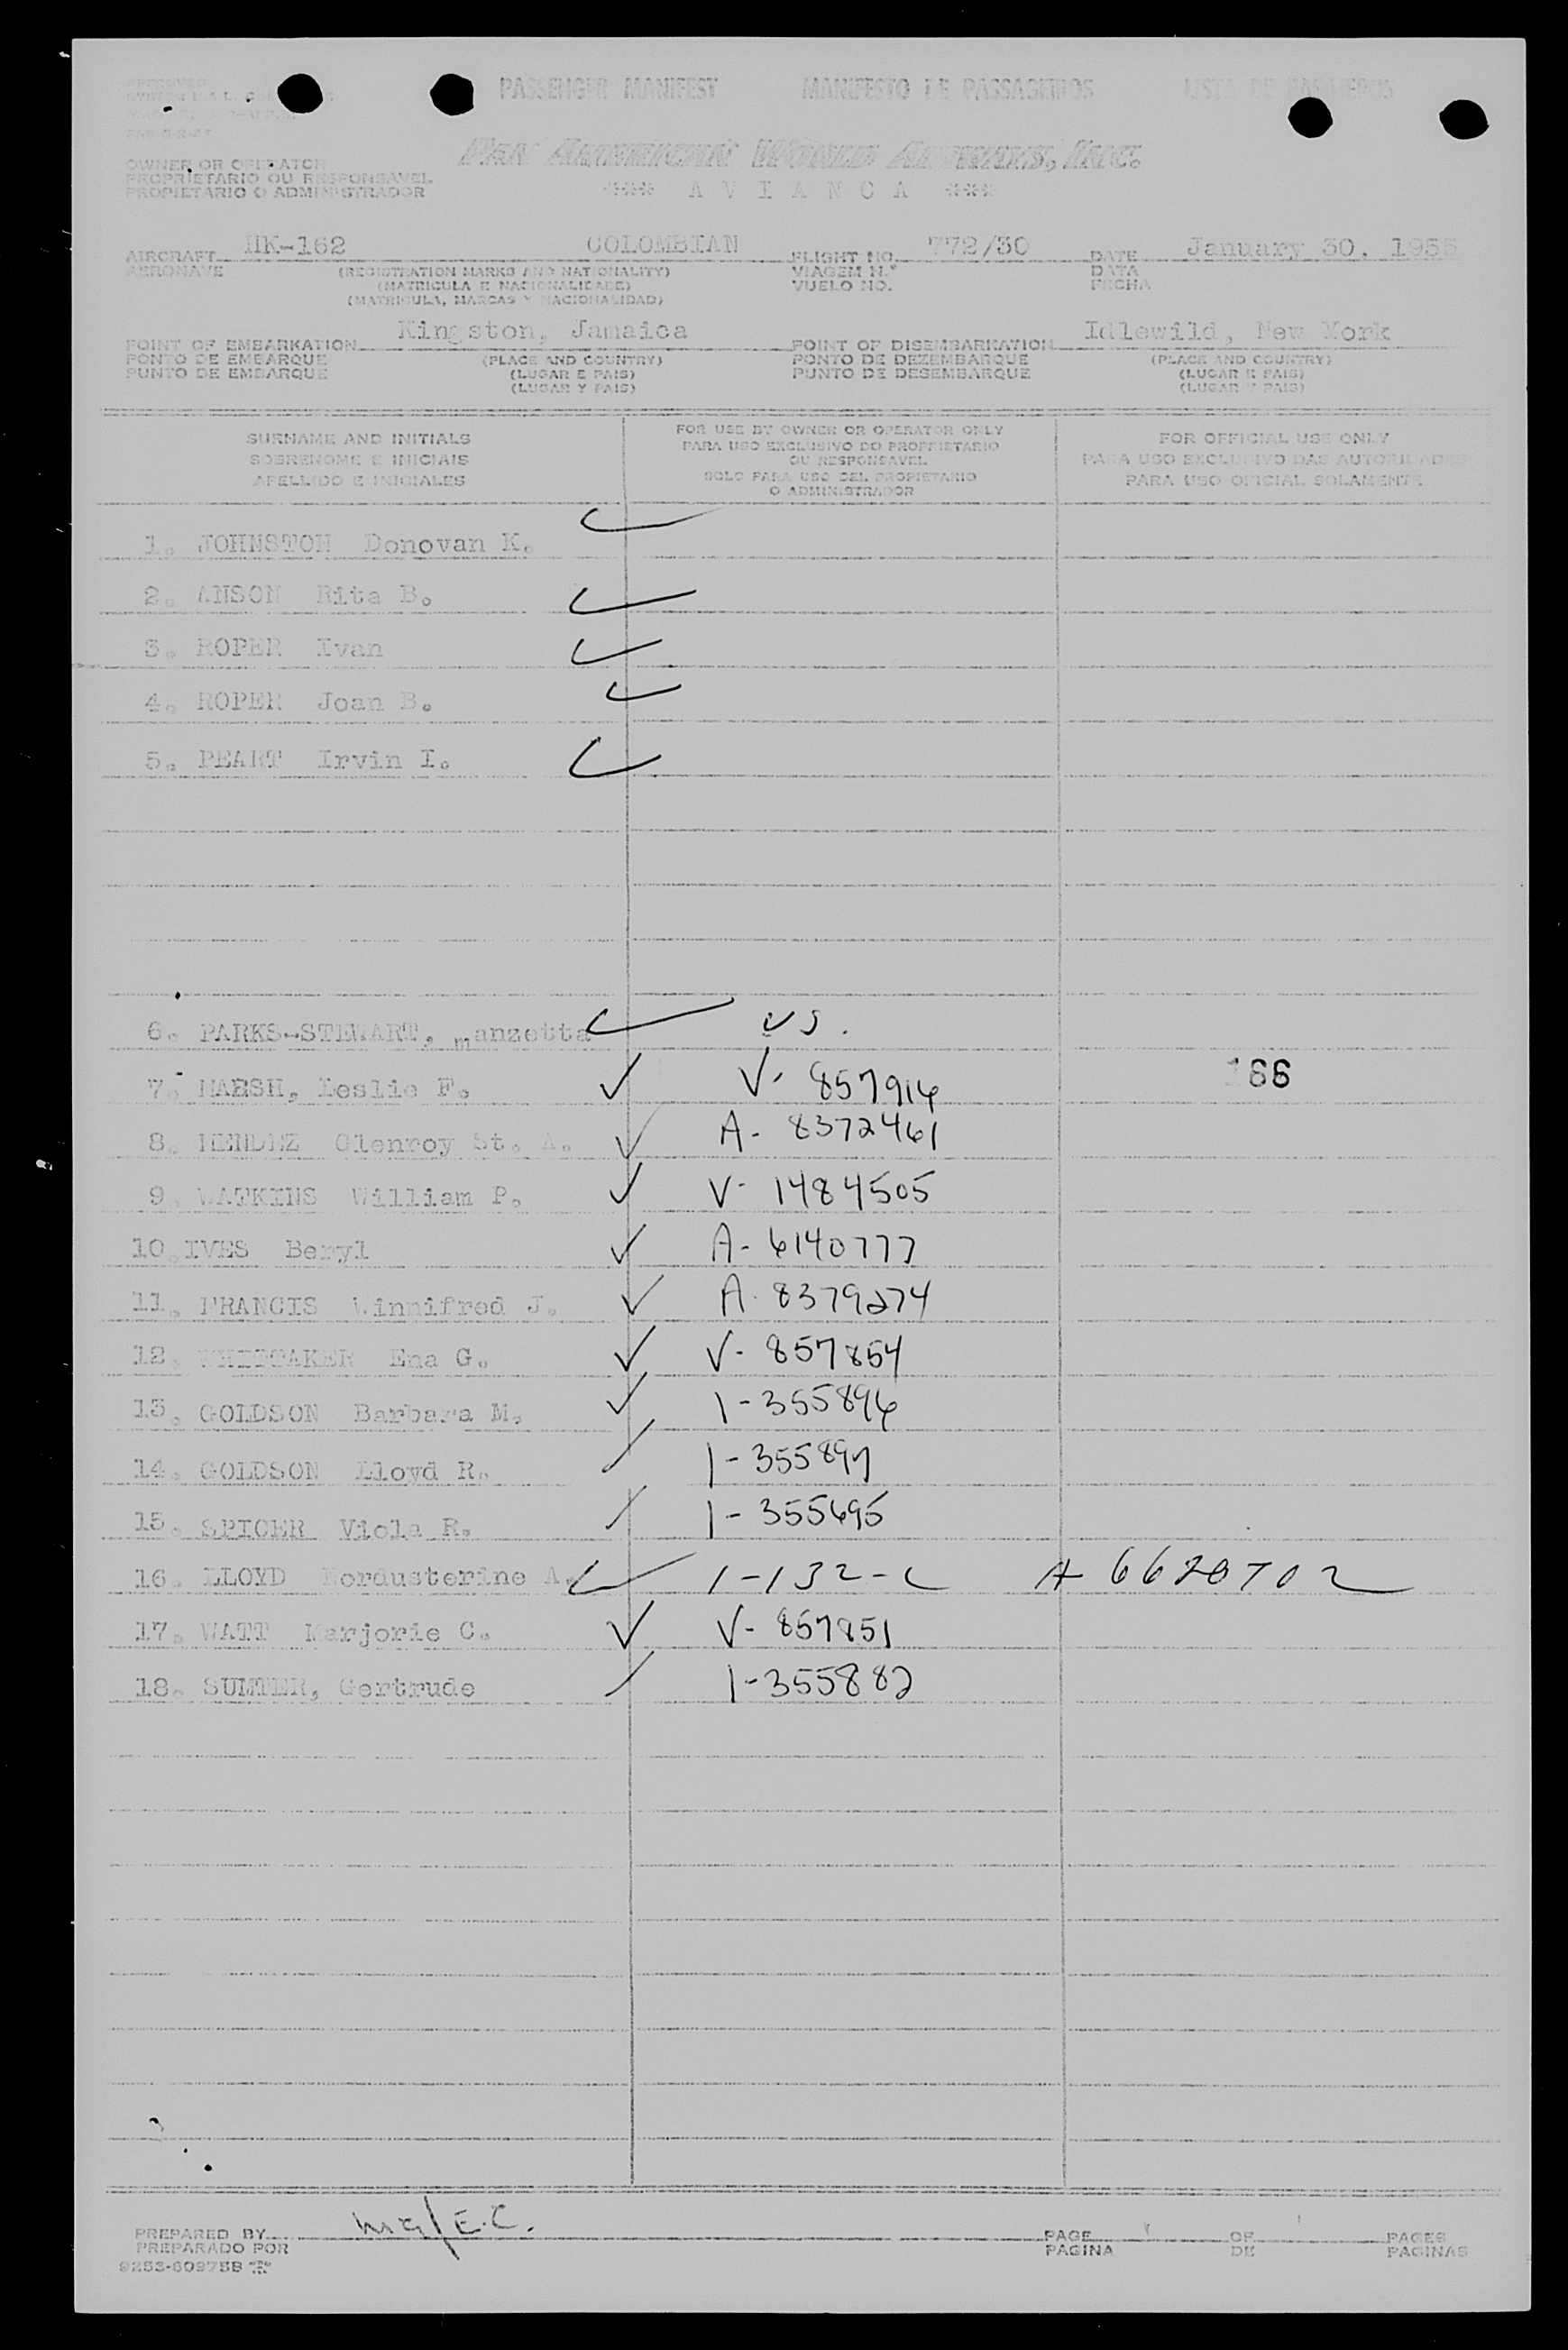 PASSENGER MANIFEST MANIFESTO DE PASSAGEIROS LISTA DE PASAJEROS
OWNER OR OPERATOR
PROPRIETARIO OU RESPONSAVEL
PROPIETARIO O ADMINISTRADOR
PAN AMERICAN WORLD AIRWAYS, INC.
*** A V I A N C A ***
AIRCRAFT HK-162 COLOMBIAN FLIGHT NO. 772/30 DATE January 30, 1955
AERONAVE (REGISTRATION MARKS AND NATIONALITY) VIAGEM N.º DATA
(MATRICULA E NACIONALIDADE) VUELO NO. FECHA
(MATRICULA, MARCAS Y NACIONALIDAD)
POINT OF EMBARKATION Kingston, Jamaica POINT OF DISEMBARKATION Idlewild, New York
PONTO DE EMBARQUE (PLACE AND COUNTRY) PONTO DE DEZEMBARQUE (PLACE AND COUNTRY)
PUNTO DE EMBARQUE (LUGAR E PAIS) PUNTO DE DESEMBARQUE (LUGAR E PAIS)
(LUGAR Y PAIS) (LUGAR Y PAIS)
SURNAME AND INITIALS FOR USE BY OWNER OR OPERATOR ONLY FOR OFFICIAL USE ONLY
SOBRENOME E INICIAIS PARA USO EXCLUSIVO DO PROPRIETARIO OU RESPONSAVEL PARA USO EXCLUSIVO DAS AUTORIDADES
APELLIDO E INICIALES SOLO PARA USO DEL PROPIETARIO O ADMINISTRADOR PARA USO OFICIAL SOLAMENTE
1. JOHNSTON Donovan K.
2. ANSON Rita B.
3. ROPER Ivan
4. ROPER Joan B.
5. PEART Irvin I.
6. PARKS-STEWART, manzetta US.
7. MARSH, Leslie F. V- 857914 166
8. MENDEZ Glenroy St. A. A- 8372461
9. WATKINS William P. V- 1484505
10. IVES Beryl A- 6140777
11. FRANCIS Winnifred J. A- 8379274
12. WHITTAKER Ena G. V- 857854
13. GOLDSON Barbara M. 1-355896
14. GOLDSON Lloyd R. 1-355897
15. SPICER Viola R. 1-355695
16. LLOYD Dordusterine A. 1-132-C A 6620702
17. WATT Marjorie C. V- 857851
18. SUMTER, Gertrude 1-355882
PREPARED BY E.C. PAGE 1 OF 1 PAGES
PREPARADO POR PAGINA DE PAGINAS
9253-60975B